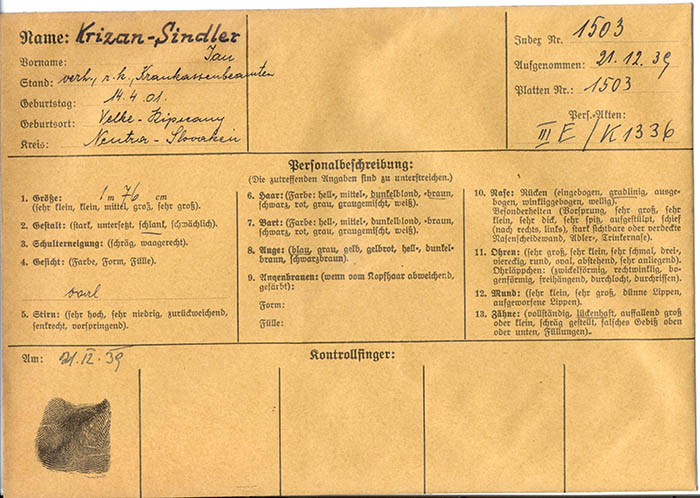 Name: Krizan-Sindler
Vorname: Jan
Stand: verh., r.k., Krankassenbeamten
Geburtstag: 14.4.01.
Geburtsort: Velke-Ripnany
Kreis: Neutra-Slovakein
Index Nr. 1503
Aufgenommen: 21.12.39
Platten Nr.: 1503
Pers.-Akten:
III E/K1336
Personalbeschreibung:
(Die zutreffenden Angaben sind zu unterstreichen.)
1. Größe: 1 m 76 cm
(sehr klein, klein, mittel, groß, sehr groß).
2. Gestalt: (stark, untersetzt, schlank, schwächlich).
3. Schulterneigung: (schräg, waagerecht).
4. Gesicht: (Farbe, Form, Fülle).
oval
5. Stirn: (sehr hoch, sehr niedrig, zurückweichend,
senkrecht, vorspringend).
6. Haar: (Farbe: hell-, mittel-, dunkelblond, -braun,
schwarz, rot, grau, graugemischt, weiß).
7. Bart: (Farbe: hell-, mittel-, dunkelblond, -braun,
schwarz, rot, grau, graugemischt, weiß).
8. Auge: (blau, grau, gelb, gelbrot, hell-, dunkel-
braun, schwarzbraun).
9. Augenbrauen: (wenn vom Kopfhaar abweichend,
gefärbt):
Form:
Fülle:
10. Nase: Rücken (eingebogen, gradlinig, ausge-
bogen, winkliggebogen, wellig).
Besonderheiten (Vorsprung, sehr groß, sehr
klein, sehr dick, sehr spitz, aufgestülpt, schief
(nach rechts, links), stark sichtbare oder verdeckte
Nasenscheidewand, Adler-, Trinkernase).
11. Ohren: (sehr groß, sehr klein, sehr schmal, drei-,
viereckig, rund, oval, abstehend, sehr anliegend).
Ohrläppchen: (zwickelförmig, rechtwinklig, bo-
genförmig, freihängend, durchlocht, durchrissen).
12. Mund: (sehr klein, sehr groß, dünne Lippen,
aufgeworfene Lippen).
13. Zähne: (vollständig, lückenhaft, auffallend groß
oder klein, schräg gestellt, falsches Gebiß oben
oder unten, Füllungen).
Am: 21.12.39
Kontrollfinger: